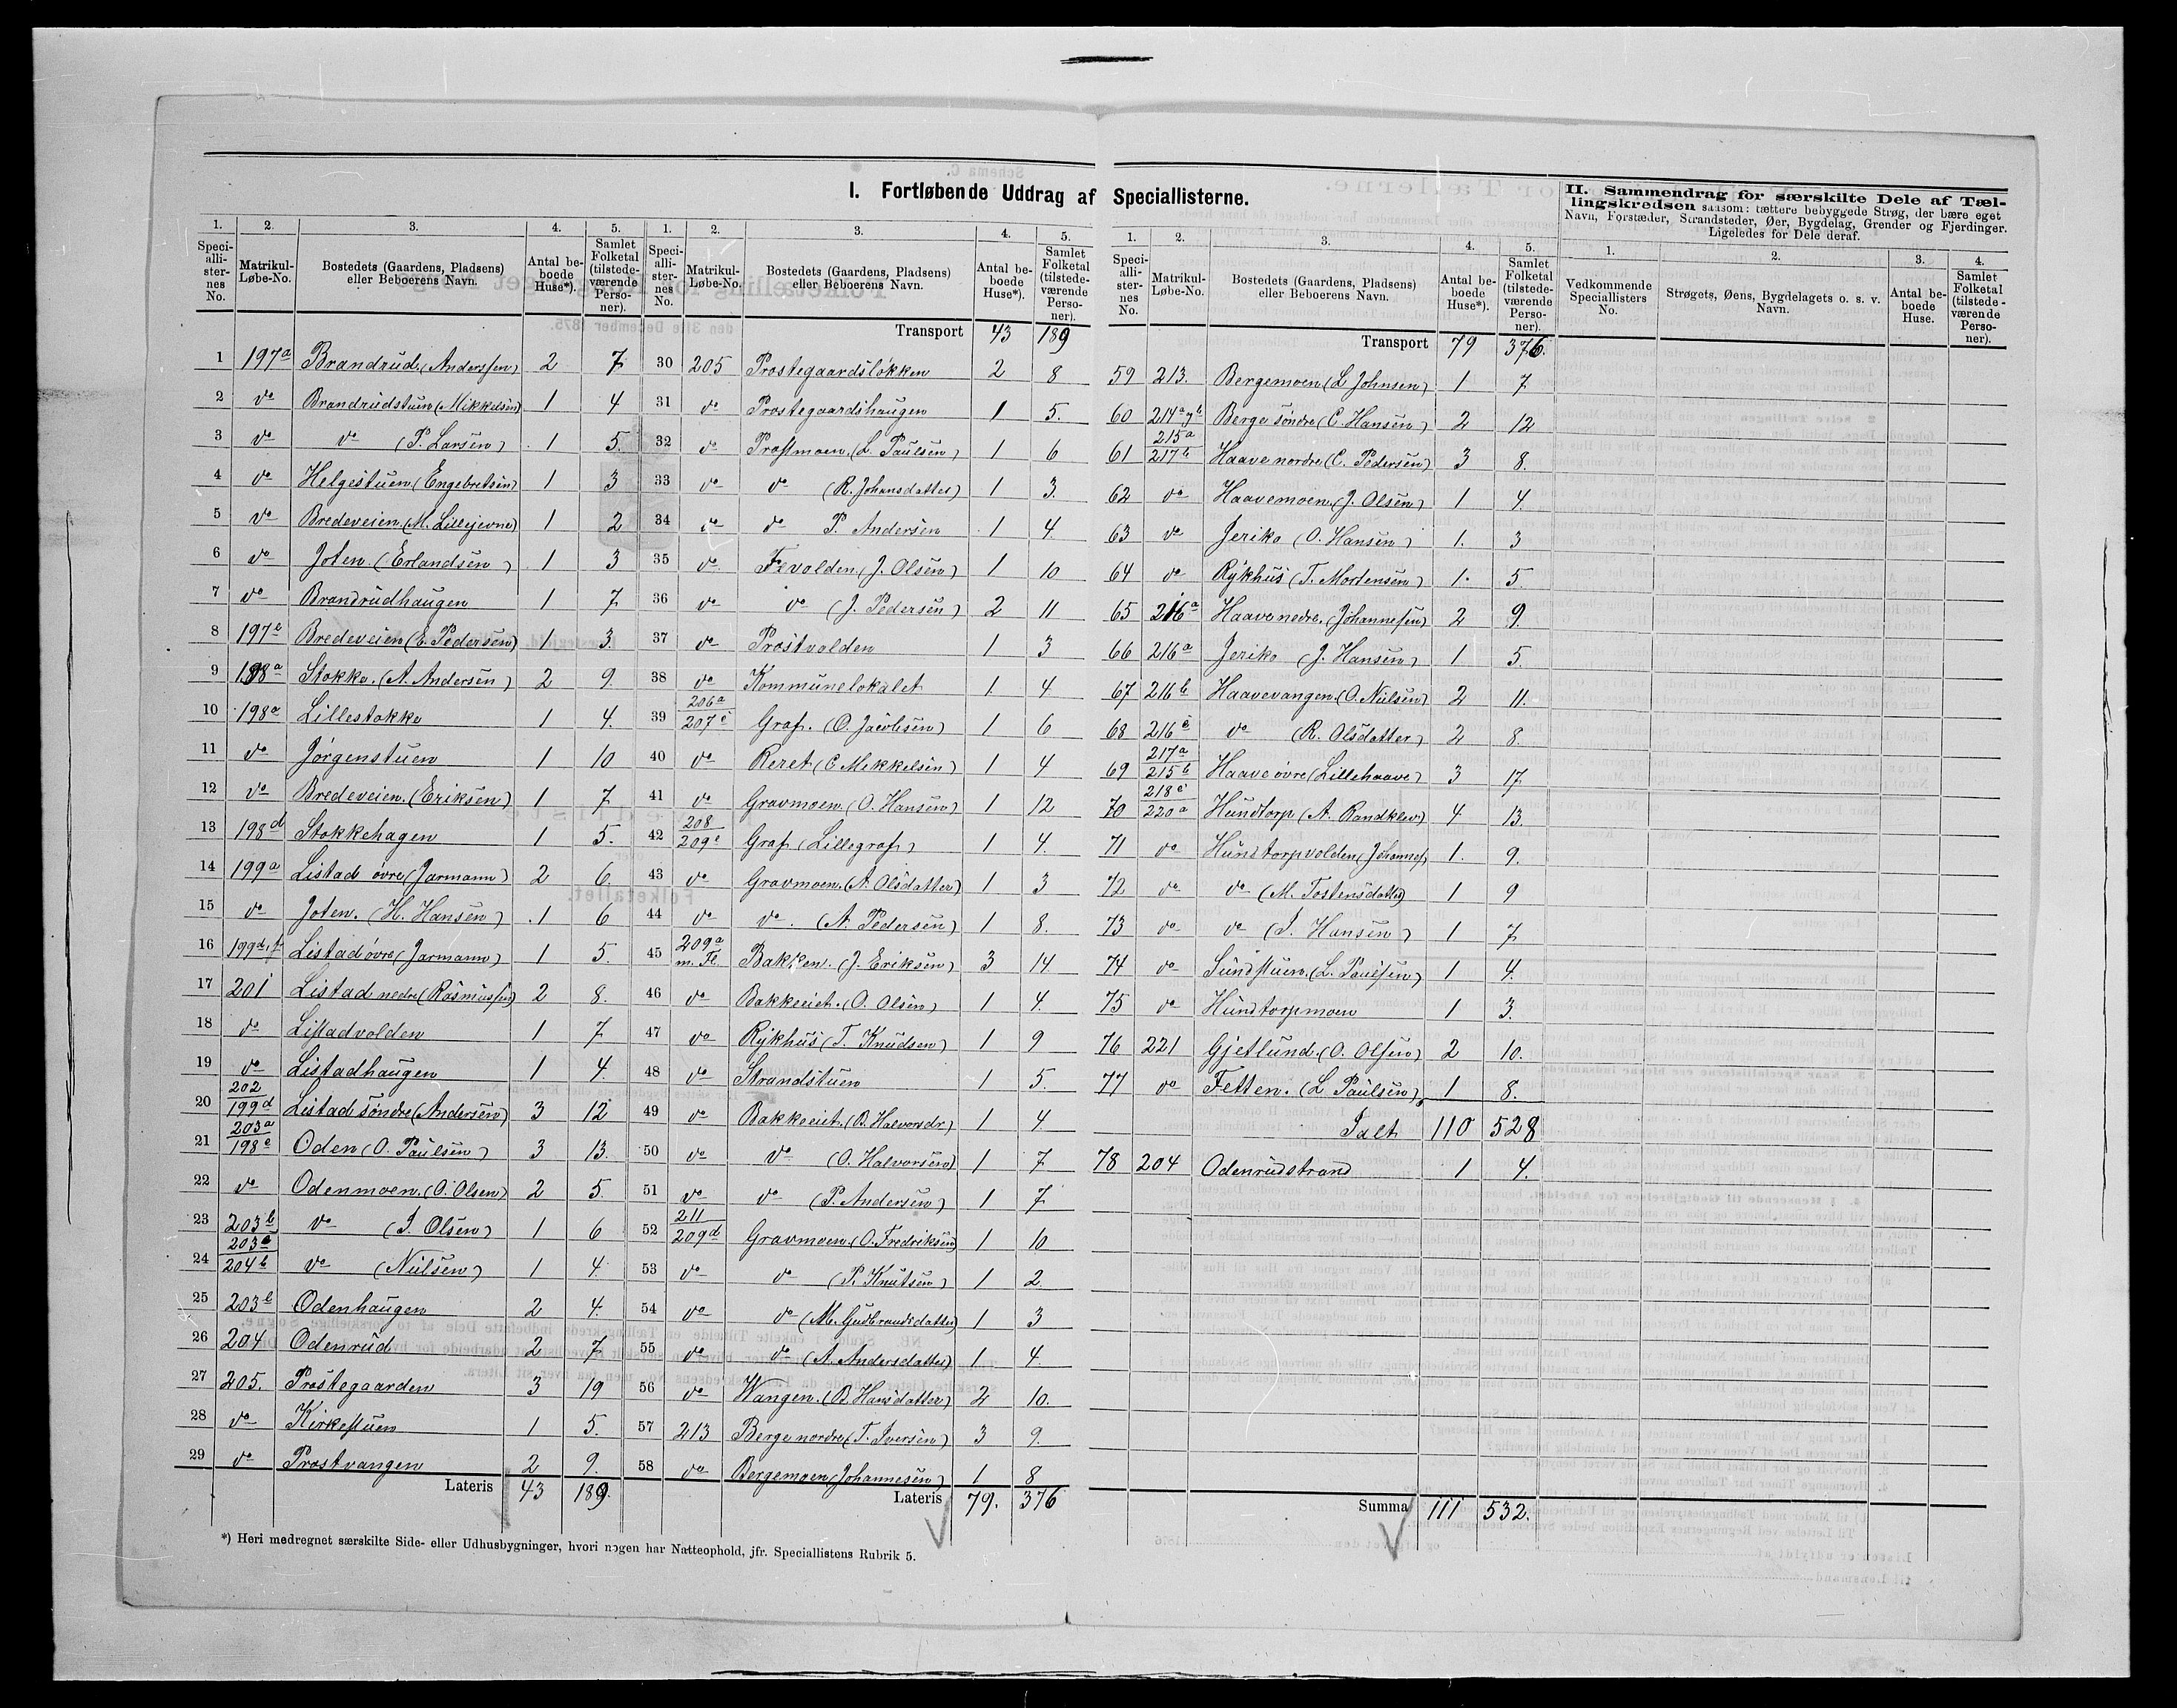 I. Fortløbende Uddrag af Speciallisterne.
1. 2. 3. 4. 5.
Speciallisternes No. Matrikul-Løbe-No. Bostedets (Gaardens, Pladsens) eller Beboerens Navn. Antal beboede Huse*). Samlet Folketal (tilstedeværende Personer).
1 197a Brandrud (Anderssen) 2 7
2 do Brandrudstuen (Mikkelsen) 1 4
3 do do (P. Larsen) 1 5.
4 do Helgestuen (Engebretsen) 1 3
5 do Bredeveien (M. Lillejevne) 1 2
6 do Joten (Erlandsen) 1 3
7 do Brandrudhaugen 1 7
8 197e Bredeveien (E. Pedersen) 1 3.
9 198a Stokke. (A. Andersen) 2 9.
10 198a Lillestokke 1 4.
11 do Jørgenstuen 1 10
12 do Bredeveien. (Eriksen) 1 7
13 198d Stokkehagen 1 5.
14 199a Listad øvre (Jarmann) 2 6.
15 do Joten. (H. Hansen) 1 6
16 199d,f Listad øvre (Jarmann) 1 5.
17 201 Listad nedre (Rasmussen) 2 8.
18 do Listadvolden 1 7
19 do Listadhaugen 1 4.
20 202 199d Listad søndre (Andersen) 3 12
21 203a 198e Oden (O. Paulsen) 3 13.
22 do Odenmoen. (O. Olsen) 2 5.
23 203b do (I. Olsen) 1 6
24 203c 204b do (Nielsen) 1 4.
25 203b Odenhaugen 2 4.
26 204 Odenrud 2 7
27 205. Prostegaarden 3 19
28 do Kirkestuen 1 5.
29 do Prostvangen 2 9.
Lateris 43 189.
1. 2. 3. 4. 5.
Speciallisternes No. Matrikul-Løbe-No. Bostedets (Gaardens, Pladsens) eller Beboerens Navn. Antal beboede Huse*). Samlet Folketal (tilstedeværende Personer).
Transport 43 189
30 205 Prostegaardsløkken 2 8
31 do Prostegaardshaugen 1 5.
32 do Prostmoen. (L. Paulsen) 1 6
33 do do (R. Johansdatter) 1 3.
34 do do P. Andersen 1 4.
35 do Fevolden. (J. Olsen) 1 10
36 do do (J. Pedersen) 2 11
37 do Prostvolden 1 3
38 do Kommunelokalet 1 4.
39 206a 207c Graf. (O. Jacobsen) 1 6
40 do Reret (C Mekkelsen) 1 4
41 do Gravmoen. (O. Hansen) 1 12
42 208 209c Graf (Lillegraf) 1 4.
43 do Gravmoen. (A. Olsdatter) 1 3
44 do do. (A. Pedersen) 1 8.
45 209a m. Fl. Bakken. (J. Eriksen) 3 14.
46 do Bakkeeiet. (O. Olsen) 1 4.
47 do Rykhus (T. Knudsen) 1 9
48 do Strandstuen 1 5.
49 do Bakkeeiet. (B. Halvorsdr.) 1 4
50 do do (O. Halvorsen) 1 7
51 do do (P. Andersen) 1 7
52 211 209d Gravmoen. (O. Fredriksen) 1 10
53 do do (P. Knutsen) 1 2.
54 do do (M. Gudbrandsdatter) 1 3
55 do do (A. Andersdatter) 1 4.
56 do Wangen. (B. Hansdatter) 2 10.
57 213 Berge nordre (T. Iversen) 3 9.
58 do Bergemoen (Johannesen) 1 8
Lateris 79. 376
1. 2. 3. 4. 5.
Speciallisternes No. Matrikul-Løbe-No. Bostedets (Gaardens, Pladsens) eller Beboerens Navn. Antal beboede Huse*). Samlet Folketal (tilstedeværende Personer).
Transport 79 376.
59 213. Bergemoen (L Johnsen) 1 7.
60 214a,b Berge søndre (C. Hansen) 2 12
61 215a 217b Haave nordre (C. Pedersen) 3 8.
62 do Haavemoen. (J. Olsen) 1 4.
63 do Jeriko (O. Hansen) 1. 3
64 do Rykhus (T. Mortensen) 1. 5.
65 216a Haave nedre. (Johannesen) 2 9.
66 216a Jeriko (J. Hansen) 1 5.
67 216b Haavevangen (O. Nielsen) 2 11.
68 216c do (R. Olsdatter) 2 8.
69 217a 215b Haave øvre (Lillehaave) 3 17
70 218c 220a Hundtorp (A. Randklev) 4 13.
71 do Hundtorpvolden (Johannes) 1. 9.
72 do do (M. Tostensdatter) 1 9
73 do do (I. Hansen) 1 7
74 do Sundstuen. (L. Paulsen) 1 4.
75 do Hundtorpmoen 1 3.
76 221 Gjetlund. (O. Olsen) 2 10.
77 do Fetten. (L Paulsen) 1 8.
Ialt 110 528
78 204 Odenrudstrand 1 4.
Summa 111 532.
II. Sammendrag for særskilte Dele af Tællingskredsen saasom: tættere bebyggede Strøg, der bære eget
Navn, Forstæder, Strandsteder, Øer, Bygdelag, Grender og Fjerdinger.
Ligeledes for Dele deraf.
1. 2. 3. 4.
Vedkommende Speciallisters No. Strøgets, Øens, Bygdelagets o. s. v. Navn. Antal beboede Huse. Samlet Folketal (tilstedeværende Personer).
*) Heri medregnet særskilte Side- eller Udhusbygninger, hvori nogen har Natteophold, jfr. Speciallistens Rubrik 5.